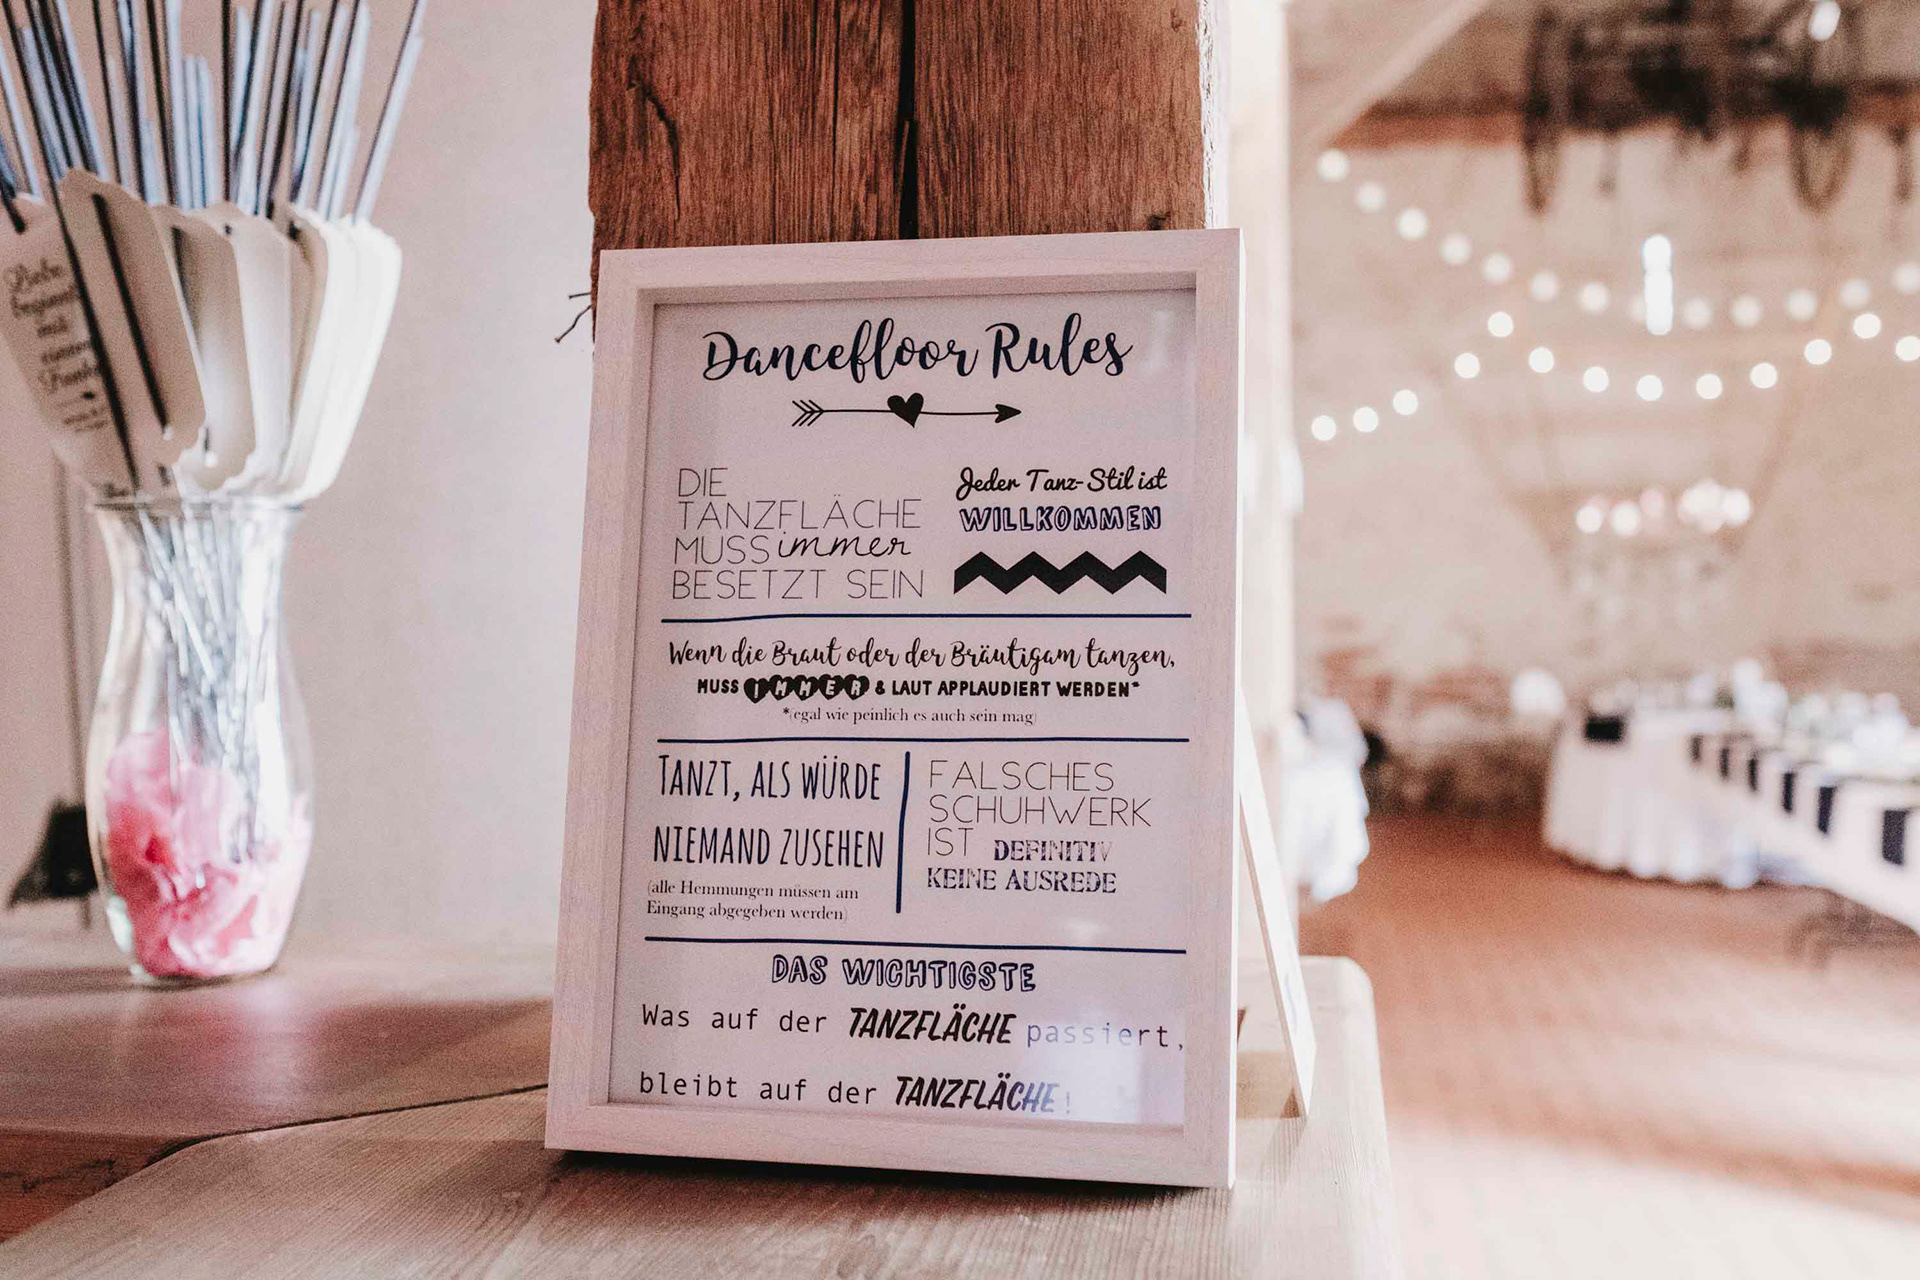 Dancefloor Rules
DIE
TANZFLÄCHE
MUSS immer
BESETZT SEIN
Jeder Tanz-Stil ist
WILLKOMMEN
Wenn die Braut oder der Bräutigam tanzen,
MUSS IMMER & LAUT APPLAUDIERT WERDEN*
*(egal wie peinlich es auch sein mag)
TANZT, ALS WÜRDE
NIEMAND ZUSEHEN
(alle Hemmungen müssen am
Eingang abgegeben werden)
FALSCHES
SCHUHWERK
IST DEFINITIV
KEINE AUSREDE
DAS WICHTIGSTE
Was auf der TANZFLÄCHE passiert,
bleibt auf der TANZFLÄCHE!
Liebe
beginnt